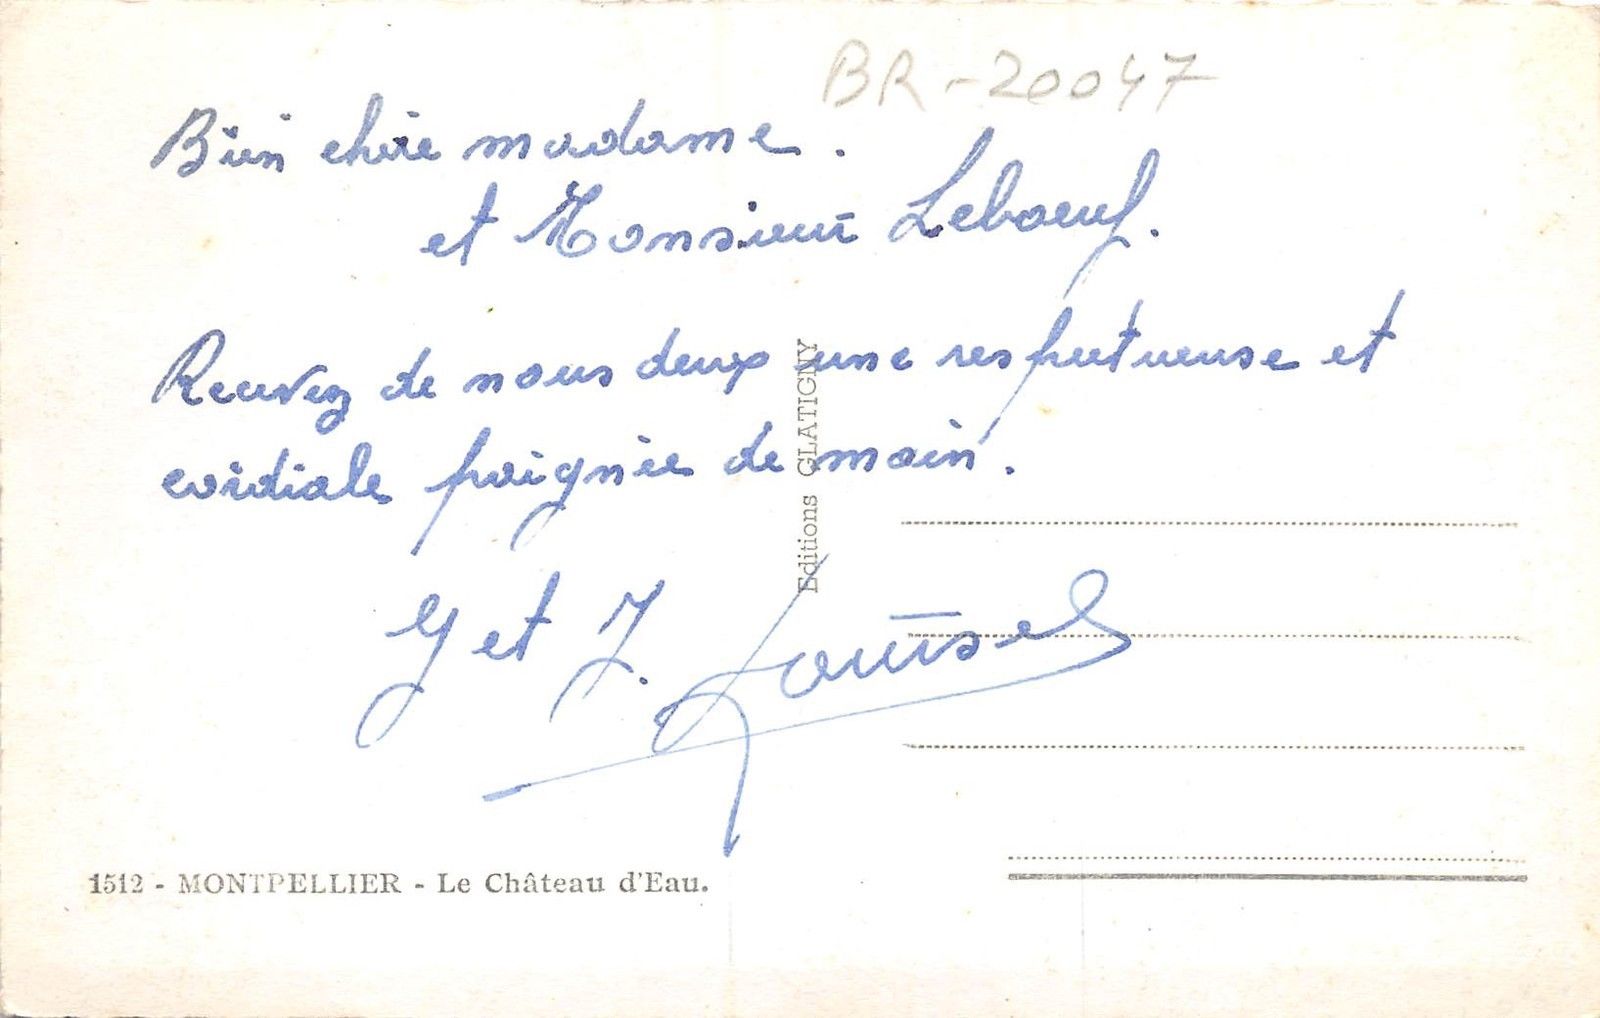 BR-20047
Bien chère madame.
et Monsieur Leboeuf.
Recevez de nous deux une respectueuse et
cordiale poignée de main.
Editions GLATIGNY
G et J. Roussel
1512 - MONTPELLIER - Le Château d'Eau.